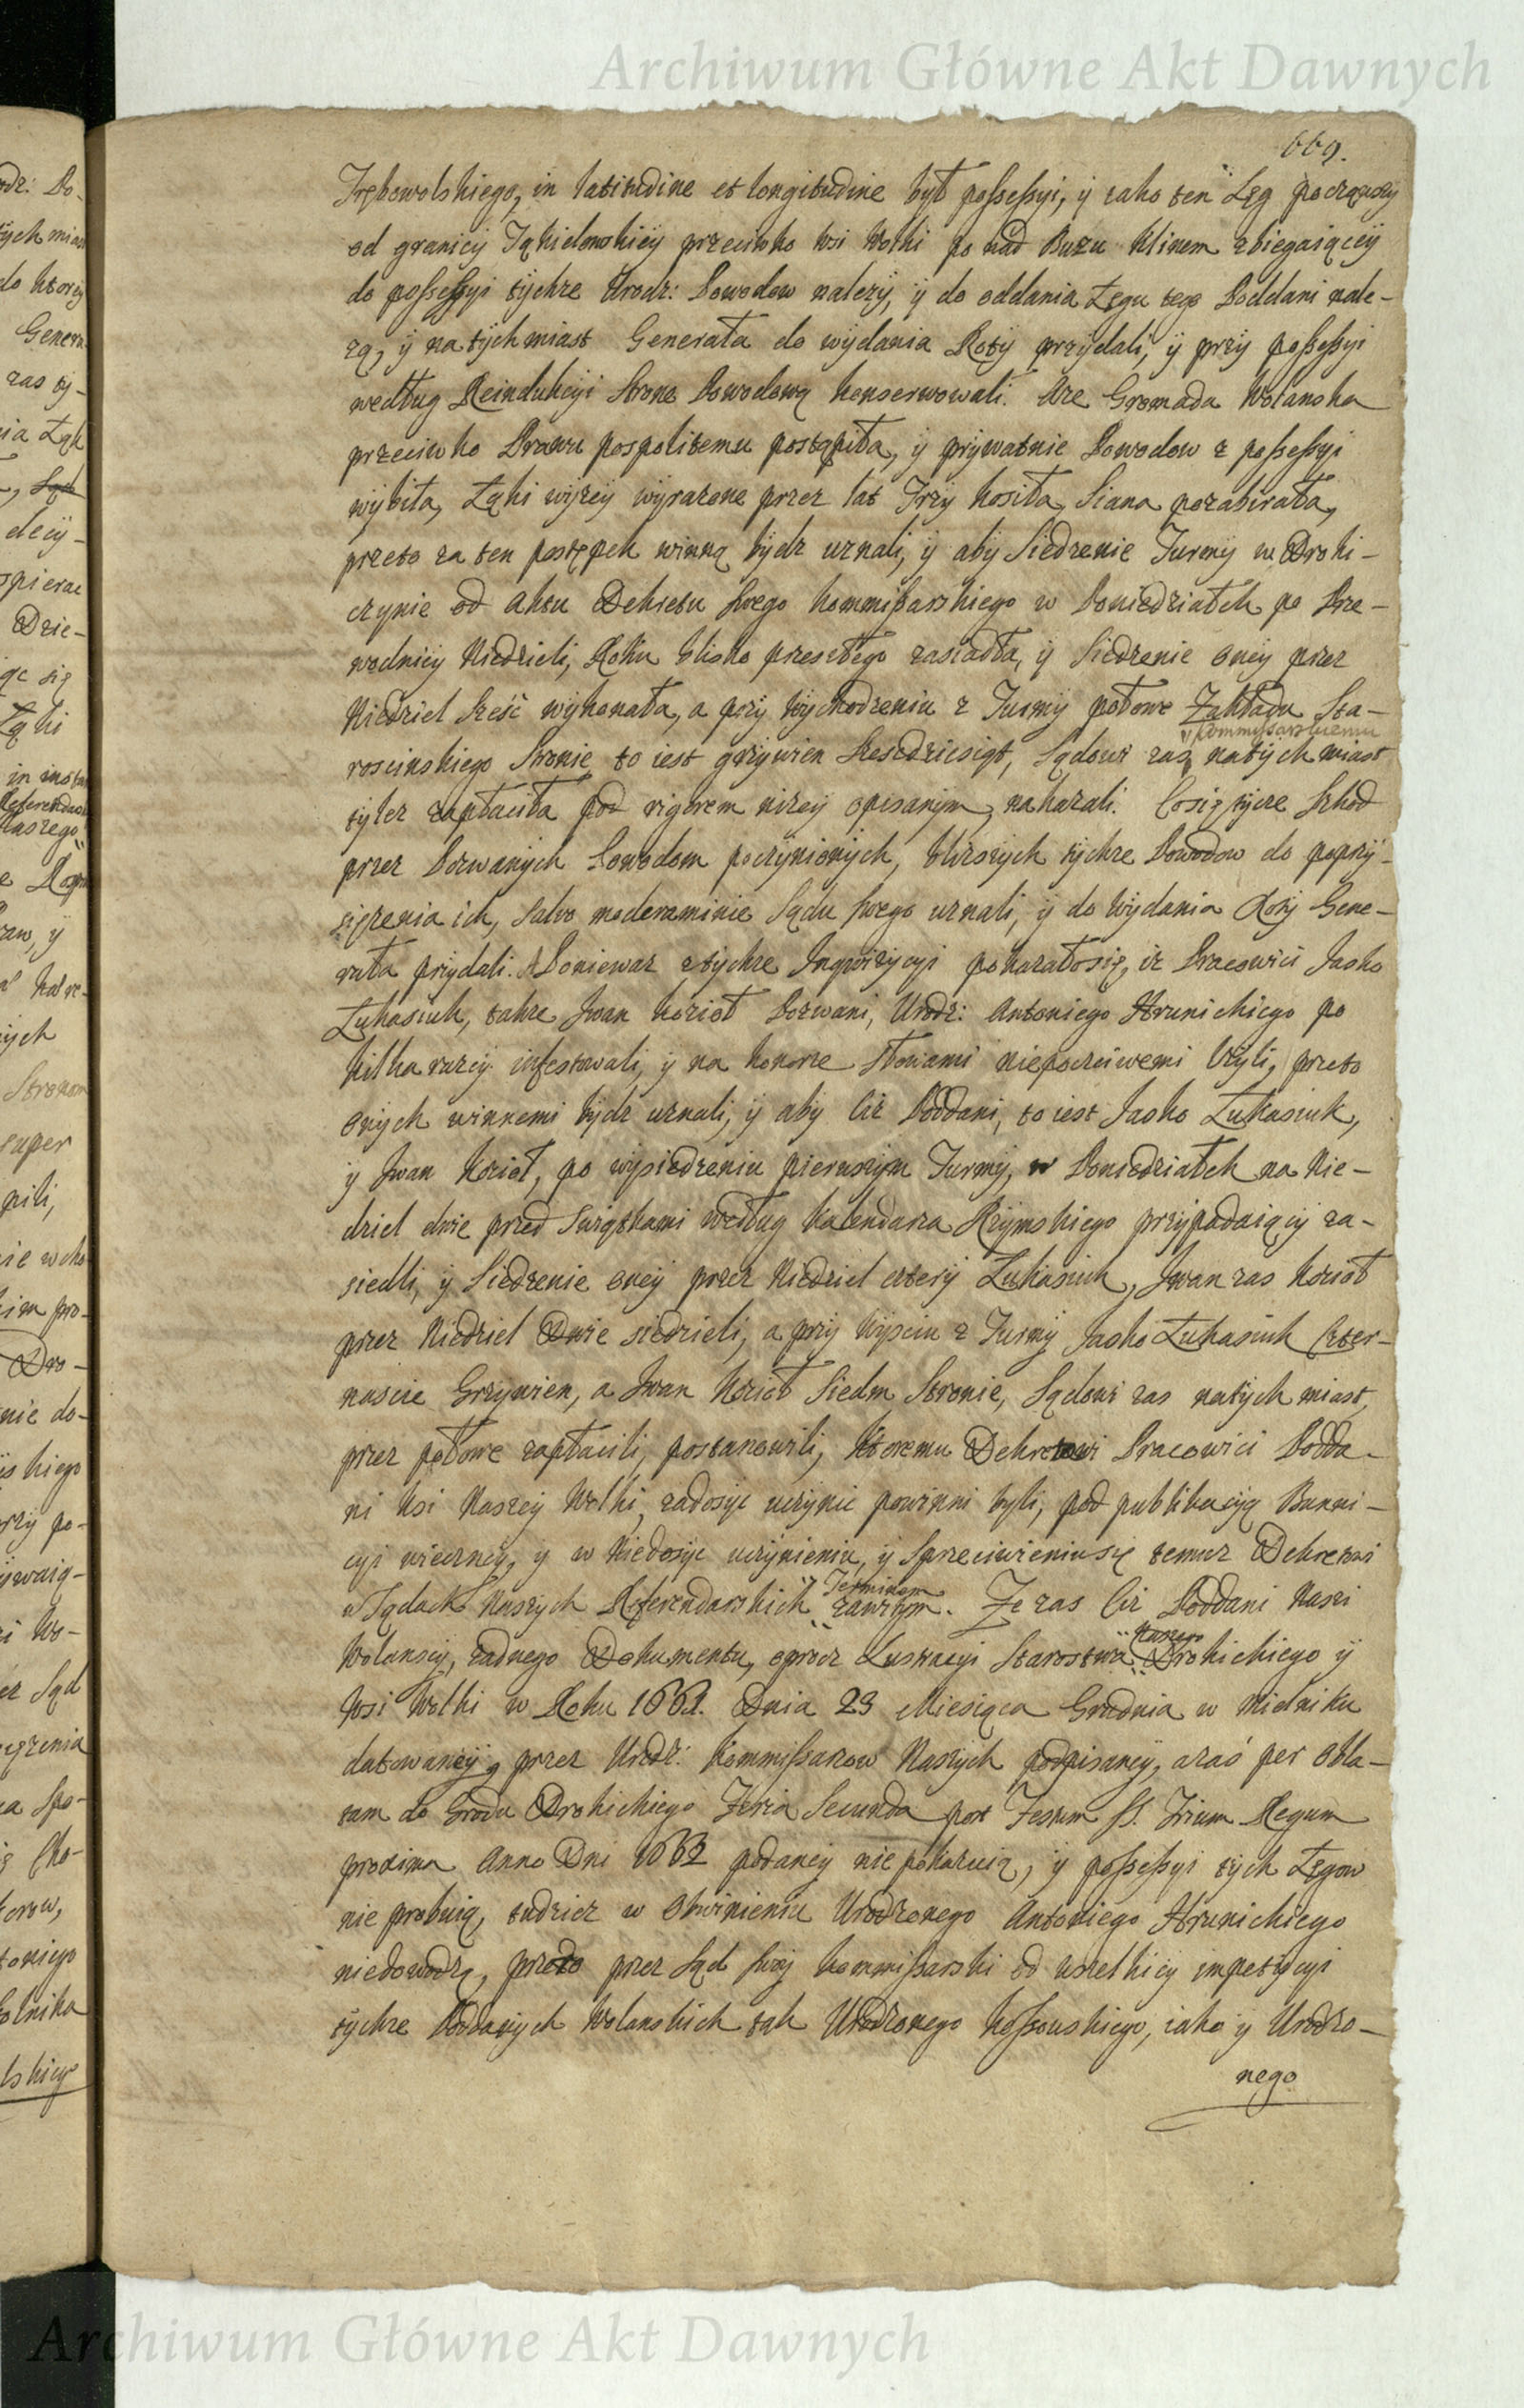 Archiwum Główne Akt Dawnych
669.
Trębowolskiego, in latitudine et longitudine był possessyi, ÿ iako ten Łęg począwszy
od granicÿ przeciwko Wsi Wolki po nad Buzu Klinem zbiegaiącÿ
do possessyi tÿchże Urodz: Powodow należÿ, ÿ do oddania Łęgu tego Poddani nale-
żą, ÿ natÿchmiast Generała do wÿdania Rotÿ przÿdali, ÿ przÿ possessyi
według Reindukcÿi Strone Powodową konserwowali. Aże Gromada Wolanska
przeciwko Prawu pospolitemu postąpiła, ÿ prÿwatnie Powodow z possessyi
wÿbiła, Łąki wÿżeÿ wÿrażone przez lat Trzÿ kosiła, Siana pozabirała,
przeto za ten postępek winną bÿdz uznali, ÿ abÿ Siedzenie Turmÿ w Drohi-
czynie od aktu Dekretu swego Kommissarskiego w Poniedziałek po Prze-
wodnieÿ Niedzieli, Roku blisko przeszłego zasiadła, ÿ Siedzenie oneÿ przez
Niedziel Sześć wÿkonała, a przÿ Wÿchodzeniu z Turmÿ połowe Zakładu Sta-
roscinskiego Stronie to iest grzÿwien Szescdziesiąt, Sądowi zas Kommÿsarskiemu natÿchmiast
tÿlez zapłaciła pod rigorem niżeÿ opisanÿm, nakazali. Co się tÿcze Szkod
przez Pozwanÿch Powodom poczÿnionÿch, bliższÿch tÿchże Powodow do poprzÿ-
siężenia ich, salvo moderaminie Sądu swego uznali, ÿ do Wÿdania Rotÿ Gene-
rała przÿdali. A Poniewaz z tÿchże Inqwizÿcyi pokazało się, iż Pracowici Jasko
Łukasiuk, także Jwan Kozioł Pozwani, Urodz: Antoniego Hrunickiego po
kilka razeÿ infestowali, ÿ na honorze Słowami niepoczciwemi lżÿli, przeto
onÿch winnemi bÿdz uznali, ÿ abÿ Ciż Poddani, to iest Jasko Łukasiuk,
ÿ Jwan Kozioł, po wÿsiedzeniu pierwszÿm Turmÿ, w Poniedziałek na Nie-
dziel dwie przed Swiątkami według Kalendarza Rzÿmskiego przÿpadaiącÿ za-
siedli, ÿ Siedzenie oneÿ przez Niedziel czterÿ Łukasiuk, Jwan zas Kozioł
przez Niedziel Dwie siedzieli, a przÿ Wÿsciu z Turmÿ Jasko Łukasiuk Czter-
nascie Grzÿwien, a Jwan Kozioł Siedm Stronie, Sądowi zas natÿchmiast,
przez połowe zapłacili, postanowili, Ktoremu Dekretowi Pracowici Podda-
ni Wsi Naszeÿ Wolki, zadosÿc uczÿnic powinni byli, pod publikacÿą Banni-
cyi wiecznej, ÿ w Niedosÿc uczÿnieniu, ÿ Sprzeciwieniu się temuz Dekretowi
w Sądach Naszych Referendarskich Terminem zawitÿm. Że zas Ciż Poddani Nasi
Wolanscÿ, żadnego Dokumentu, oprocz Lustracyi Starostwa Naszego Drohickiego ÿ
Wsi Wolki w Roku 1661. Dnia 23 Miesiąca Grudnia w Mielniku
datowaneÿ, przez Urodz: Kommissarzow Naszÿch podpisaneÿ, araś per Obla-
tam do Grodu Drohickiego Feria Secunda post Festum SS. Trium Regum
proxima Anno Dni 1662 podaneÿ nie pokazuią, ÿ possessyi tÿch Łęgow
nie probuią, tudzież w Obwinieniu Urodzonego Antoniego Hrunickiego
niedowodzą, przeto przez Sąd swoÿ Kommissarski od wszelkieÿ impetÿcyi
tÿchże Poddanÿch Wolanskich tak Urodzonego Kossowskiego, iako ÿ Urodzo-
nego
Archiwum Główne Akt Dawnych